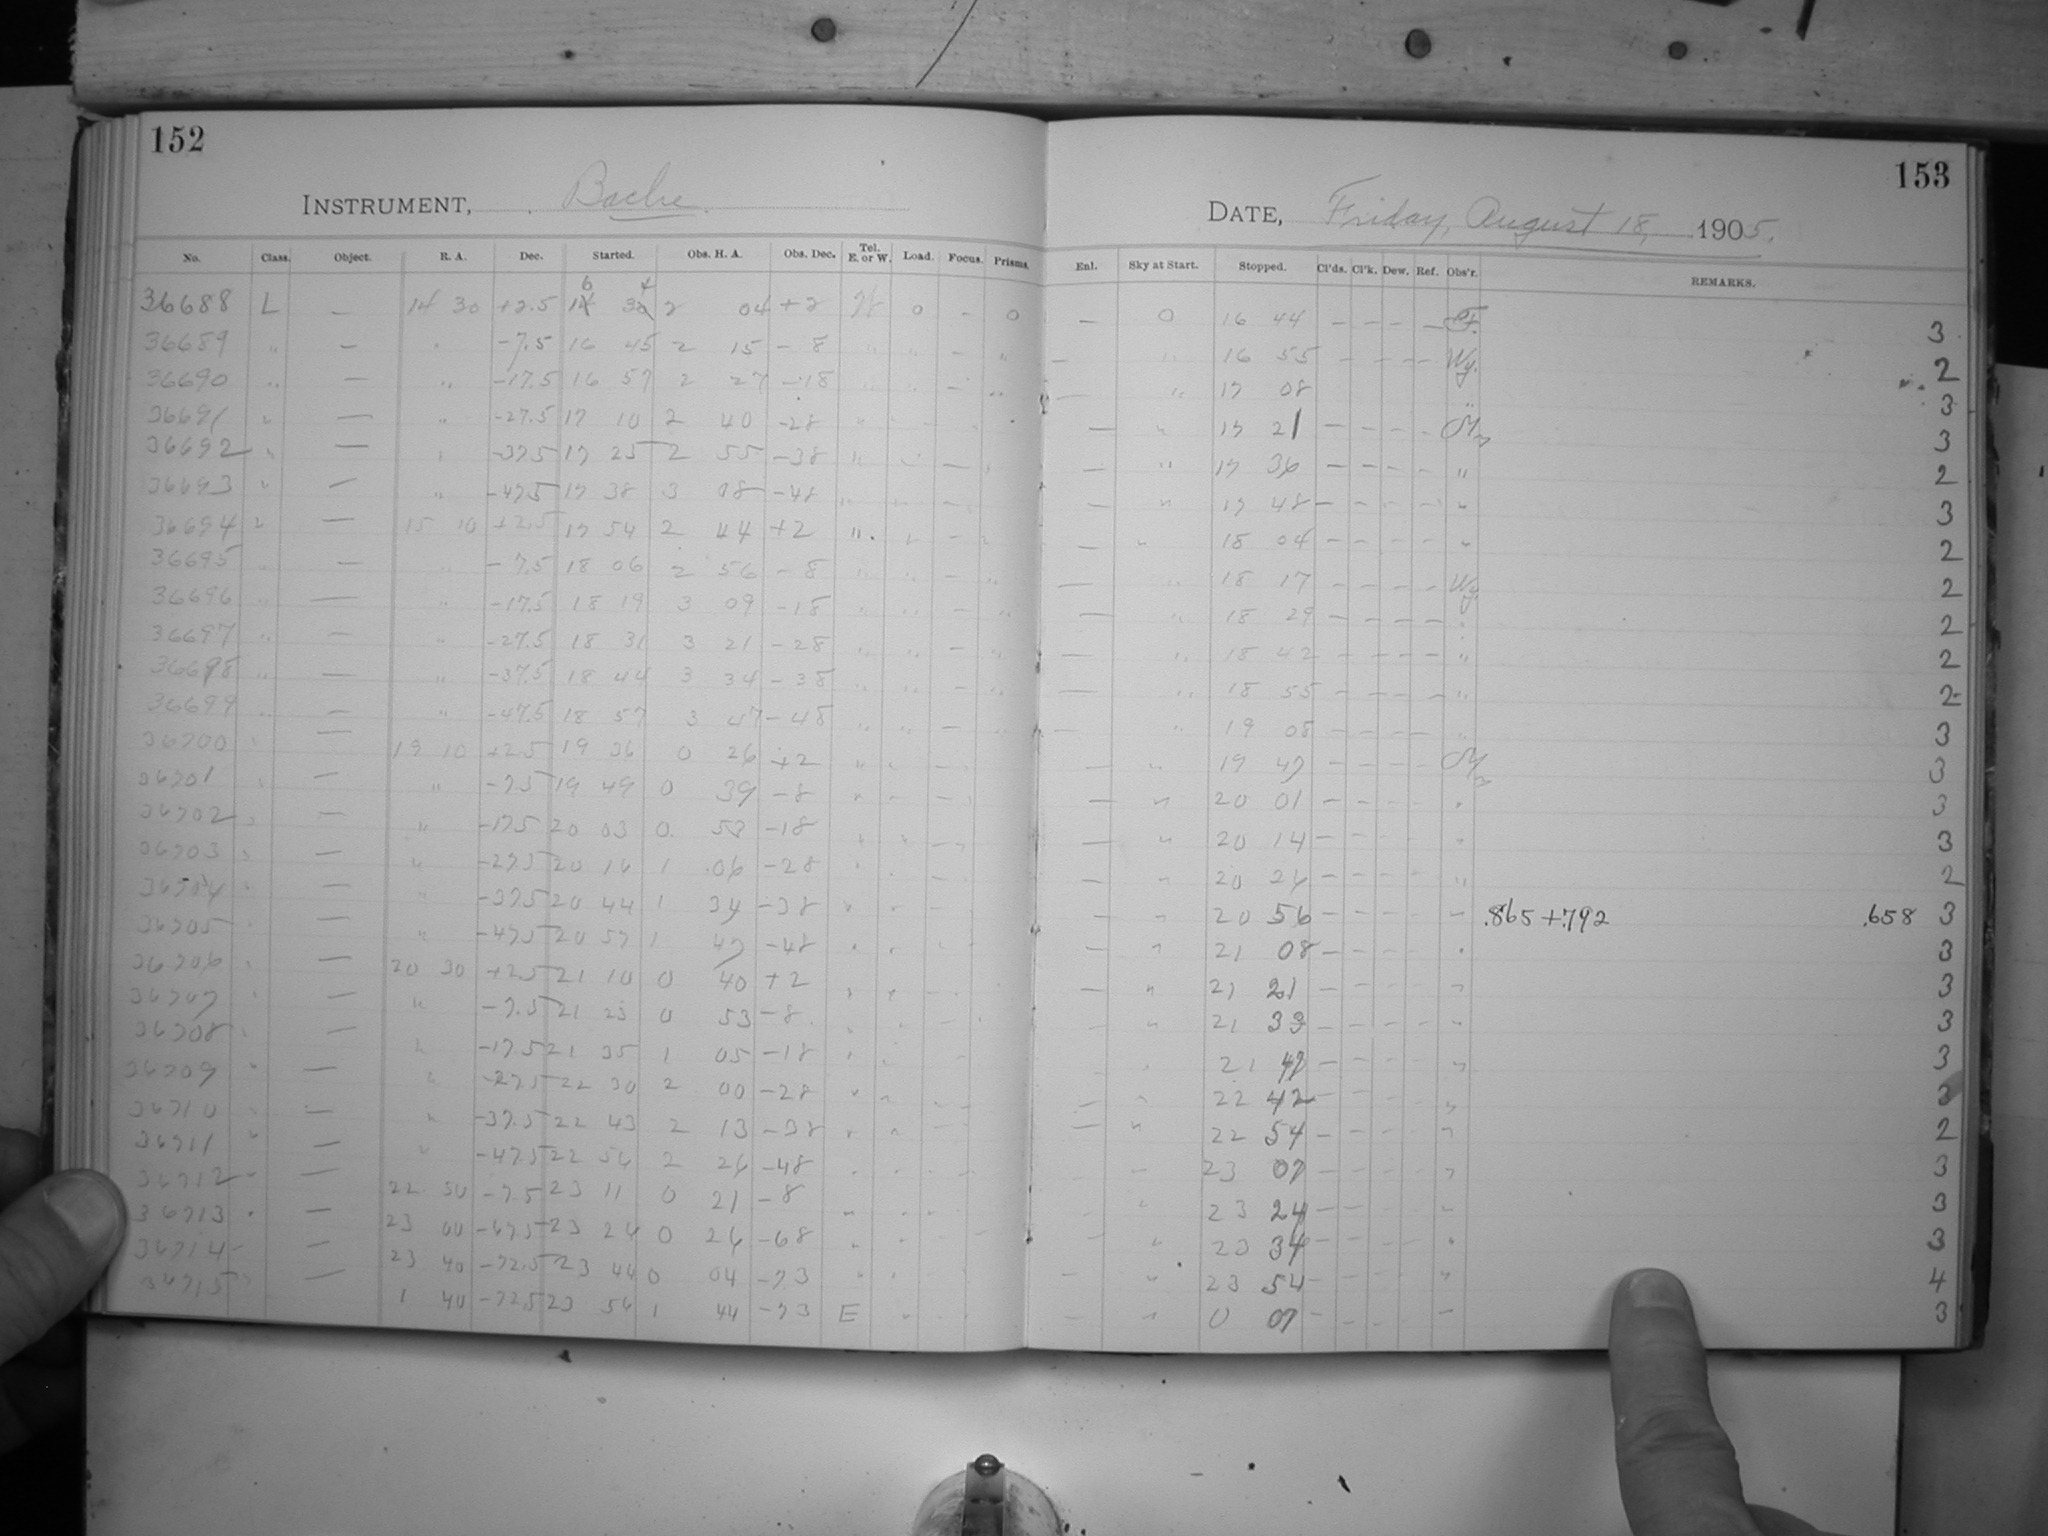 152
INSTRUMENT, Bache
No. Class. Object. R. A. Dec. Started. Obs. H. A. Obs. Dec. Tel. E. or W. Load. Focus. Prisms.
36688 L — 14 30 +2.5 16 34 2 04 +2 W 0 - 0
36689 " — " -7.5 16 45 2 15 -8 " " - "
36690 " — " -17.5 16 57 2 27 -18 " " - "
36691 " — " -27.5 17 10 2 40 -28 " " -
36692 " — " -37.5 17 25 2 55 -38 " " — "
36693 " — " -47.5 17 38 3 08 -48 " " -
36694 " — 15 10 +2.5 17 54 2 44 +2 " " - "
36695 " — " -7.5 18 06 2 56 -8 " " - "
36696 " — " -17.5 18 19 3 09 -18 " " - "
36697 " — " -27.5 18 31 3 21 -28 " " - "
36698 " — " -37.5 18 44 3 34 -38 " " - "
36699 " — " -47.5 18 57 3 47 -48 " " - "
36700 " — 19 10 +2.5 19 36 0 26 +2 " " -
36701 " — " -7.5 19 49 0 39 -8 " " —
36702 " — " -17.5 20 03 0 53 -18 " " -
36703 " — " -27.5 20 16 1 06 -28 " -
36704 " — " -37.5 20 44 1 34 -38 " " -
36705 " — " -47.5 20 57 1 47 -48 " " -
36706 " — 20 30 +2.5 21 10 0 40 +2 " " -
36707 " — " -7.5 21 23 0 53 -8 " " -
36708 " — " -17.5 21 35 1 05 -18 " "
36709 " — " -27.5 22 30 2 00 -28 " " -
36710 " — " -37.5 22 43 2 13 -38 " " -
36711 " — " -47.5 22 56 2 26 -48 " " -
36712 " — 22 50 -7.5 23 11 0 21 -8 " " -
36713 " — 23 00 -67.5 23 26 0 26 -68 " " -
36714 " — 23 40 -72.5 23 44 0 04 -73 " "
36715 " — 1 40 -72.5 23 56 1 44 -73 E "
153
DATE, Friday, August 18, 1905.
Enl. Sky at Start. Stopped. Cl'ds. Cl'k. Dew. Ref. Obs'r. REMARKS.
— 0 16 44 — — — — F. 3
— " 16 55 — — — — Wy. 2
— " 17 08 " 3
— " 17 21 — — — — 3
— " 17 36 — — — — " 2
— " 17 48 — — — — " 3
— " 18 04 — — — — " 2
— " 18 17 — — — — Wy. 2
— " 18 29 — — — — " 2
— " 18 42 — — — — " 2
— " 18 55 — — — — " 2
" 19 08 — — — — " 3
— " 19 47 — — — — 3
— " 20 01 — — — — " 3
— " 20 14 — — — — " 3
— " 20 26 — — — — " 2
— " 20 56 — — — — " .865 +.792 .658 3
— " 21 08 — — — — " 3
— " 21 21 — — — — " 3
— " 21 33 — — — — " 3
" 21 48 — — — — " 3
— " 22 42 — — — — " 3
— " 22 54 — — — — " 2
— 23 07 — — — — " 3
" 23 24 — — — — " 3
" 23 34 — — — — " 3
— " 23 54 — — — — " 4
— " 0 07 — — — " 3